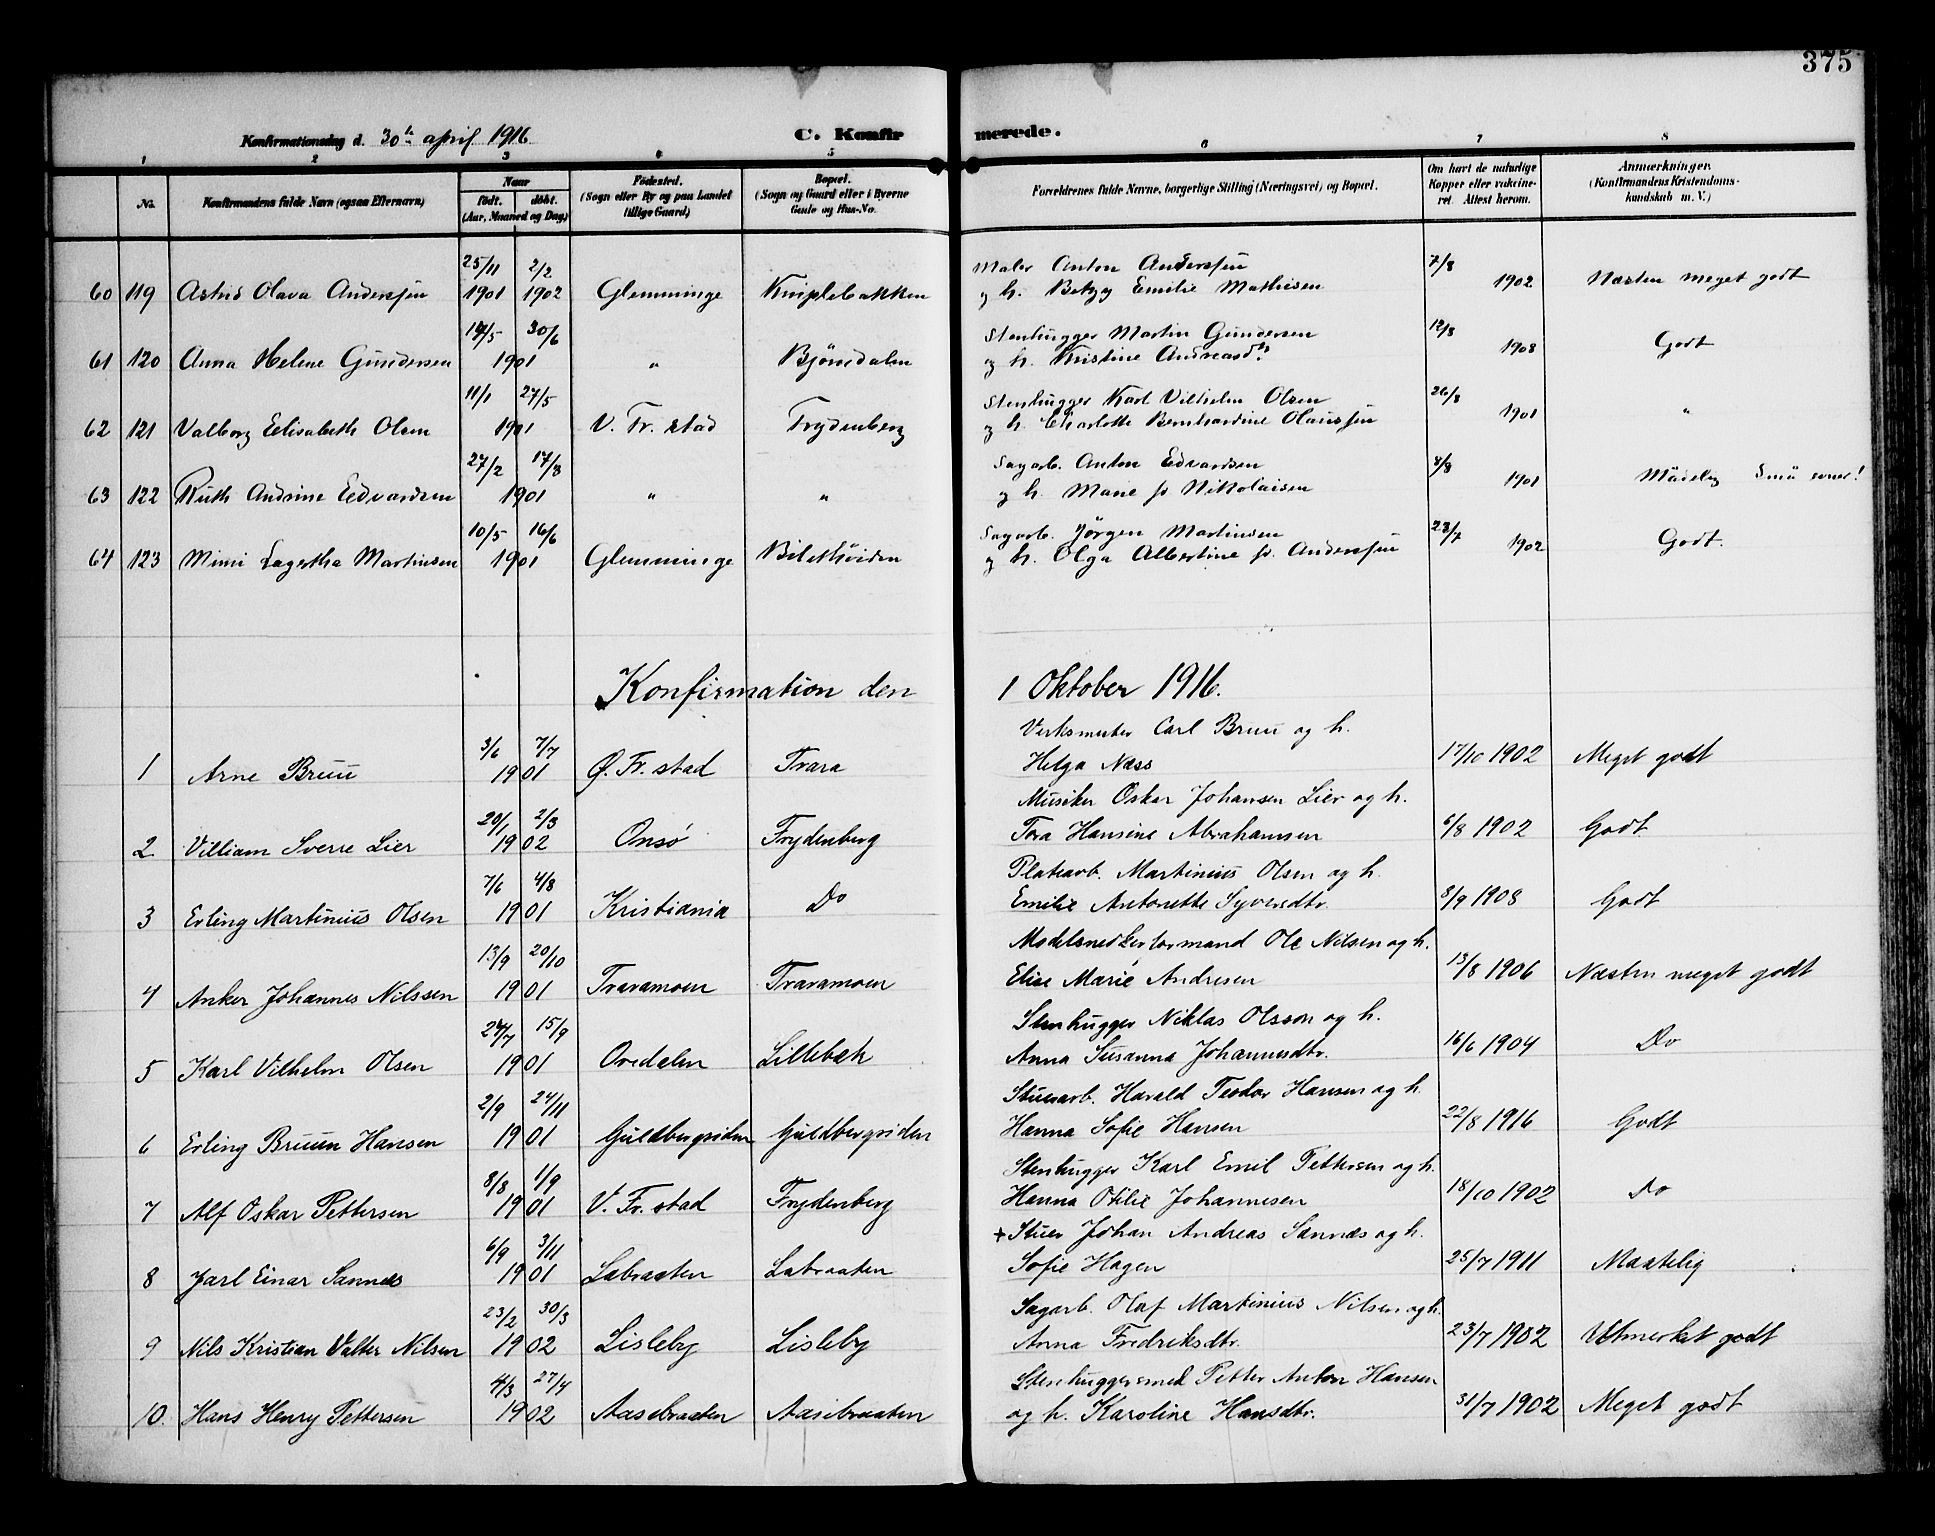 375
Konfirmationsdag d. 30te april 1916
C. Konfirmerede.
1 2 3 4 5 6 7 8
No.
Konfirmandens fulde Navn (ogsaa Efternavn)
Naar
født. døbt.
(Aar, Maaned og Dag)
Fødested.
(Sogn eller By og paa Landet
tillige Gaard)
Bopæl.
(Sogn og Gaard eller i Byerne
Gade og Hus-No.
Forældrenes fulde Navne, borgerlige Stilling (Næringsvei) og Bopæl.
Om havt de naturlige
Kopper eller vakcine-
ret. Attest herom.
Anmærkninger.
(Konfirmandens Kristendoms-
kundskab m. V.)
25/11 2/2 Maler Anton Anderssen 7/8
60 119 Astrid Olava Anderssen 1901 1902 Glemminge Kniplebakken og h. Betzy Emilie Mathisen 1902 Næsten meget godt
14/5 30/6 Stenhugger Martin Gundersen 12/8
61 120 Anna Helene Gundersen 1901 " Bjørnsdalen og h. Kristine Andreasdtr 1908 Godt
11/1 27/5 Stenhugger Karl Vilhelm Olsen 26/8
62 121 Valborg Elisabeth Olsen 1901 V. Fr. stad Frydenberg og h. Charlotte Bernhardine Olaussen 1901 "
27/2 17/8 Sagarb. Anton Edvardsen 8/8
63 122 Ruth Andrine Edvardsen 1901 " " og h. Marie f. Nikolaisen 1901 Mådelig Små evner!
10/5 16/6 Sagarb. Jørgen Martinsen 23/7
64 123 Mimi Lagertha Martinsen 1901 Glemminge Biletthøiden og h. Olga Albertine f. Anderssen 1902 Godt.
Konfirmation den 1 Oktober 1916.
3/6 7/7 Verksmester Carl Bruu og h.
1 Arne Bruu 1901 Ø. Fr. stad Trara Helga Næss 17/10 1902 Meget godt
20/1 2/3 Musiker Oskar Johansen Lier og h.
2 Villiam Sverre Lier 1902 Onsø Frydenberg Tora Hansine Abrahamsen 6/8 1902 Godt
7/6 4/8 Platearb. Martinius Olsen og h.
3 Erling Martinius Olsen 1901 Kristiania Do Emilie Antonette Syversdtr. 3/9 1908 Godt
13/9 20/10 Modelsnedkerformand Ole Nilsen og h.
4 Anker Johannes Nilssen 1901 Traramoen Traramoen Elise Marie Andresen 13/8 1906 Næsten meget godt
24/7 15/9 Stenhugger Niklas Olsson og h.
5 Karl Vilhelm Olsen 1901 Ovedalen Lillebæk Anna Susanna Johannesdtr. 16/6 1904 Do
2/9 24/11 Stuerarb. Harald Teodor Hansen og h.
6 Erling Bruun Hansen 1901 Guldbergsiden Guldbergsiden Hanna Sofie Hansen 22/8 1916 Godt
8/8 1/9 Stenhugger Karl Emil Pettersen og h.
7 Alf Oskar Pettersen 1901 V. Fr. stad Frydenberg Hanna Otilie Johannesen 18/10 1902 Do
6/9 3/11 + Stuer Johan Andreas Sannæs og h.
8 Jarl Einar Sannæs 1901 Labraaten Labraaten Sofie Hagen 25/7 1911 Maatelig
23/2 30/3 Sagarb. Olaf Martinius Nilsen og h.
9 Nils Kristian Valter Nilsen 1902 Lisleby Lisleby Anna Fredriksdtr. 23/7 1902 Utmerket godt
4/3 27/4 Stenhuggersmed Petter Anton Hansen
10. Hans Henry Pettersen 1902 Aasebraaten Aasebraaten og h. Karoline Hansdtr. 31/7 1902 Meget godt